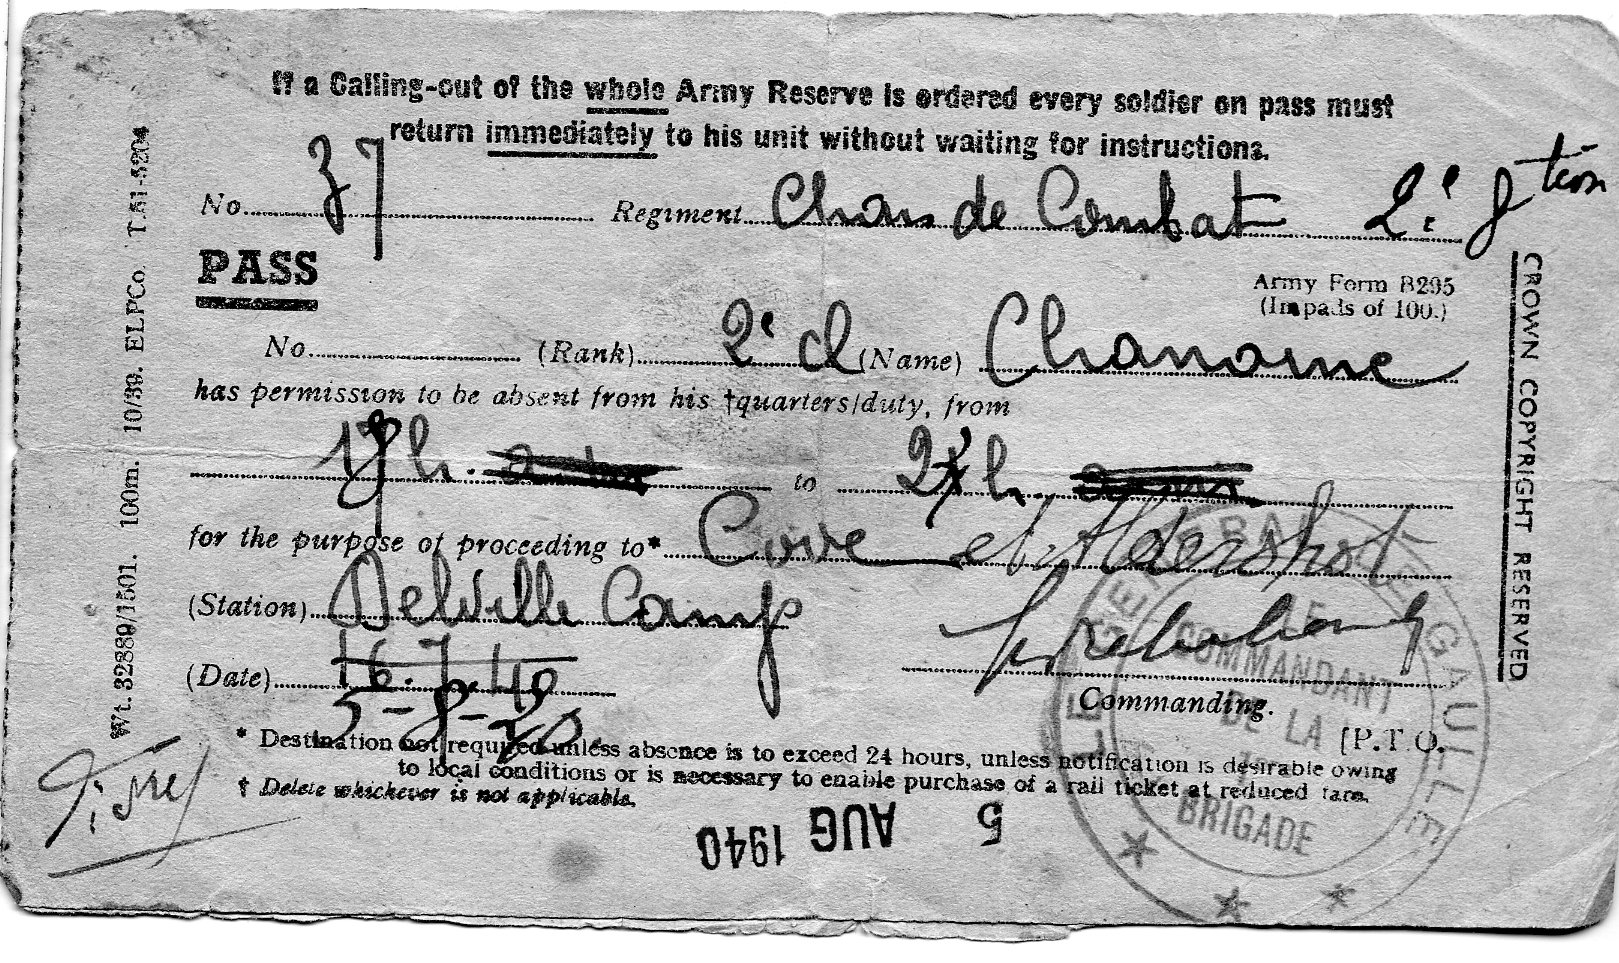 If a Calling-out of the whole Army Reserve is ordered every soldier on pass must
return immediately to his unit without waiting for instructions.
No. 37 Regiment Chars de Combat 2e Stion
PASS
Army Form B295
(In pads of 100.)
No. (Rank) 2e Cl (Name) Chanoine
has permission to be absent from his †quarters/duty, from
h. to h.
for the purpose of proceeding to* Cove et Aldershot
(Station) Delville Camp
(Date) 16.7.40
5-8-
Commanding.
[P.T.O.
* Destination not required unless absence is to exceed 24 hours, unless notification is desirable owing
to local conditions or is necessary to enable purchase of a rail ticket at reduced fare.
† Delete whichever is not applicable.
5 AUG 1940
LEGION GENERAL DE GAULLE
LE
COMMANDANT
DE LA
1
BRIGADE
Wt. 32889/1501. 100m. 10/39. ELPCo. T.51-5204
CROWN COPYRIGHT RESERVED